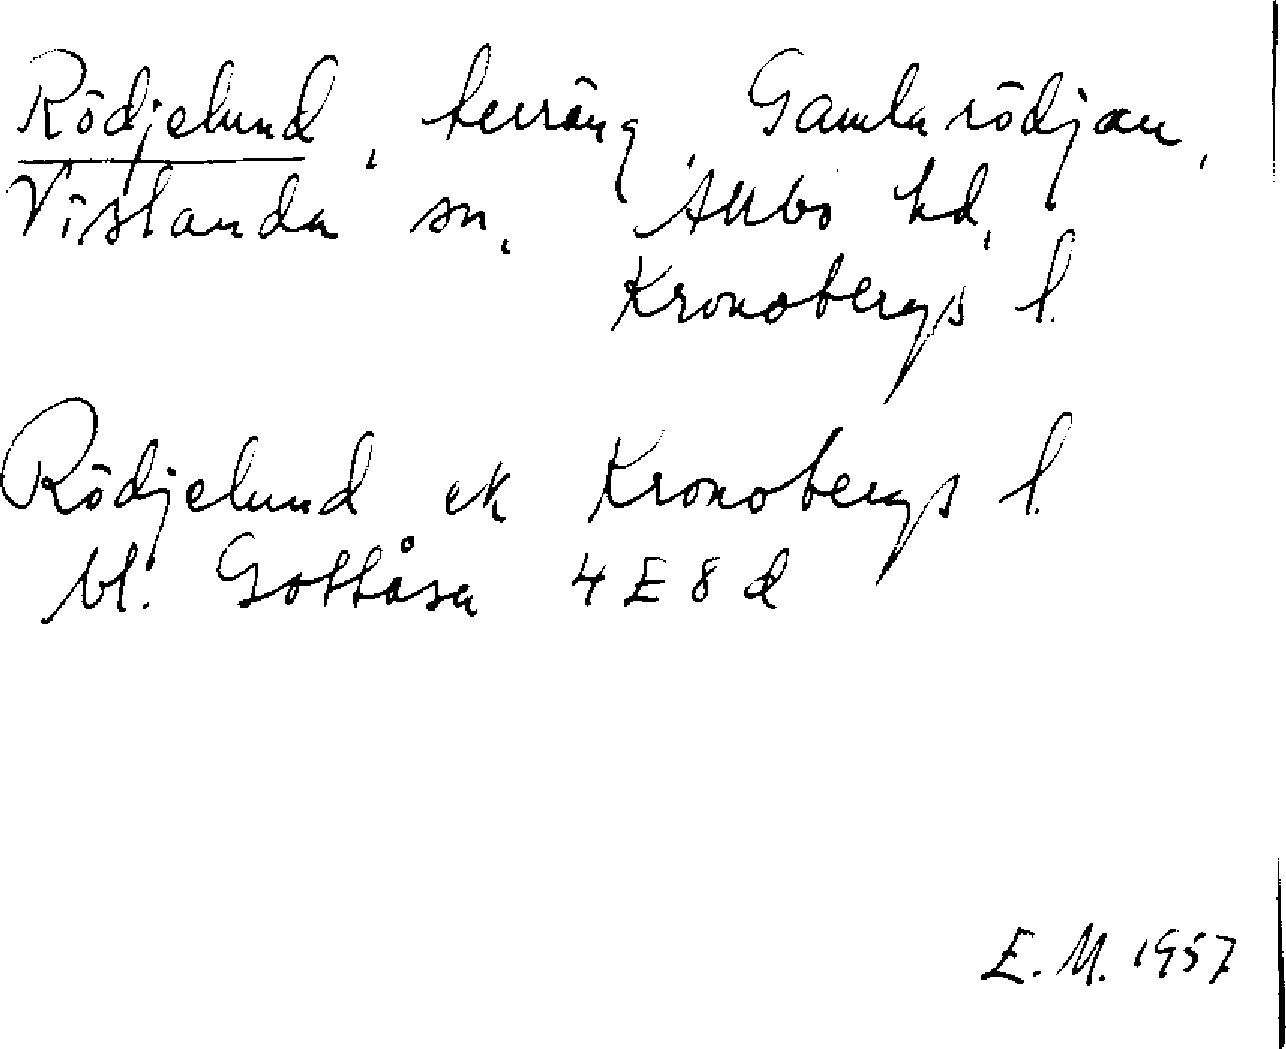 Rödjelund, terräng, Gamlarödjan,
Vislanda sn, Allbo hd,
Kronobergs l.
Rödjelund ek Kronobergs l.
bl. Gottåsa 4 E 8 d
E. M. 1957